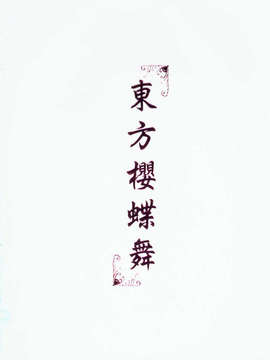 東方櫻蝶舞